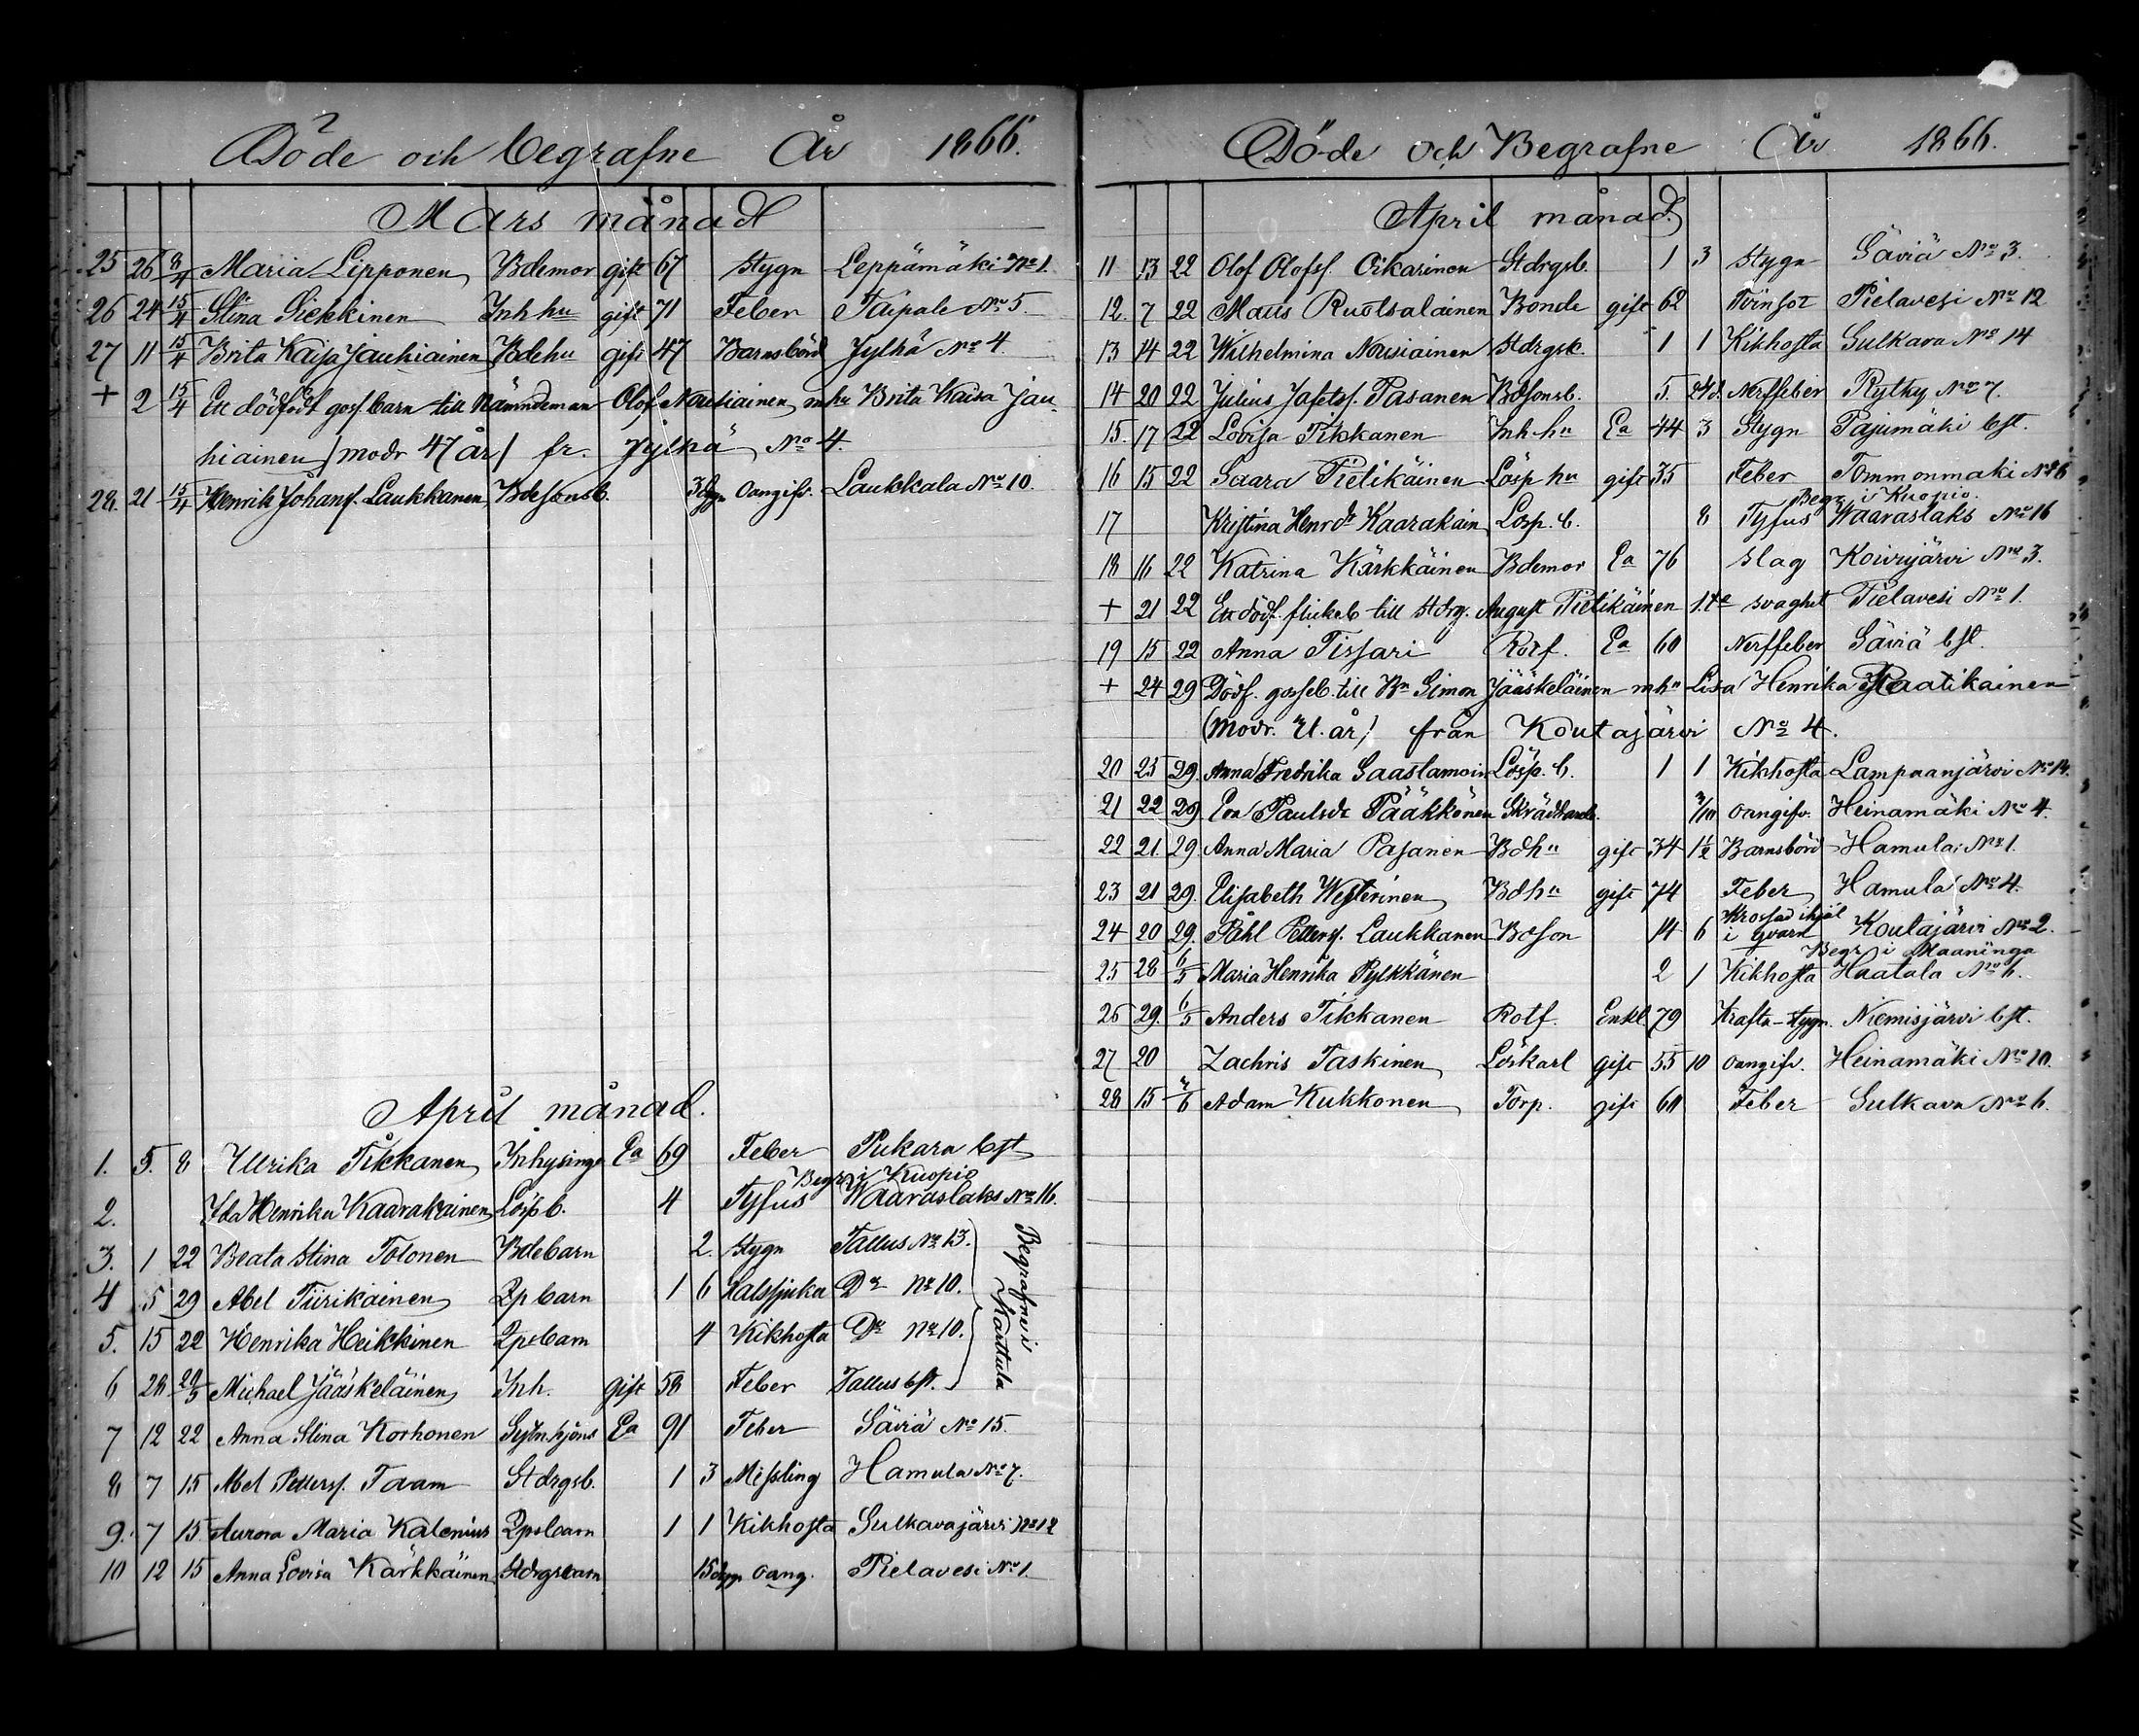 Döde och begrafne År 1866.
Mars månad
25 26 8/4 Maria Lipponen Bdemor gift 67 Stygn Leppämäki No 1.
26 24 15/4 Stina Siekkinen Inh hu gift 71 Feber Taipale No 5.
27 11 15/4 Brita Kaisa Jauhiainen Bdehu gift 47 Barnsbörd Jylhä No 4.
+ 2 15/4 Ett dödfödt goss. barn till Nämndeman Olof Nousiainen mhu Brita Kaisa Jau-
hiainen (modr 47 år) fr. Jylhä No 4.
28. 21 15/4 Henrik Johans. Laukkanen Bdesonsb. 3 dgn oangifv. Laukkala No 10.
April månad.
1. 5. 8 Ulrika Tikkanen Inhysing Ea 69 Feber Pukara bst
Begr. i Kuopio
2. Ida Henrika Kaarakainen Lösp b. 4 Tyfus Waaraslaks No 16.
3. 1 22 Beata Stina Tolonen Bdebarn 2. Stygn Tallus No 13.
4 5 29 Abel Tiirikainen Tp barn 1 6 Halssjuka Do No 10.
5. 15 22 Henrika Heikkinen Tpsbarn 4 Kikhosta Do No 10.
6 28 20/5 Michael Jääskeläinen Inh. gift 58 Feber Tallus bst.
Begrafne i Karttula
7 12 22 Anna Stina Korhonen Sytnhjons Ea 91 Feber Säviä No 15.
8 7 15 Abel Petters. Tavam Stdrgsb. 1 3 Messling Hamula No 7.
9. 7 15 Aurora Maria Kalenius Tpsbarn 1 1 Kikhosta Sulkavajärvi No 12
10 12 15 Anna Lovisa Kärkkäinen Stdrgsbarn 15 dgn oang. Pielavesi No 1.
Döde och Begrafne År 1866.
April månad.
11 13 22 Olof Olofss. Oikarinen Stdrgsb. 1 3 Stygn Säviä No 3.
12. 7 22 Matts Ruotsalainen Bonde gift 62 Tvinsot Pielavesi No 12
13 14 22 Wilhelmina Nousiainen Stdrgsb. 1 1 Kikhosta Sulkava No 14
14 20 22 Julius Jafetss. Pasanen Bdsonsb. 5. 24 d. Nerffeber Rytky No 7.
15. 17 22 Lovisa Tikkanen Inh hu Ea 44 3 Stygn Pajumäki bst.
16 15 22 Saara Pietikäinen Lösp hu gift 35 Feber Tommonmäki No 26
Begr. i Kuopio.
17 Kristina Henrdr Kaarakain Lösp. b. 8 Tyfus Waaraslaks No 16
18 16 22 Katrina Kärkkäinen Bdemor Ea 76 Slag Koivujärvi No 3.
+ 21 22 Ett dödf. flickeb till Stdrg. August Pietikäinen svaghet Pielavesi No 1.
19 15 22 Anna Tissari Rotf. Ea 60 Nerffeber Säviä bst.
+ 24 29 Dödf. gosseb. till Bn Simon Jääskeläinen mhu Lisa Henrika Raatikainen
(modr. 21. år) från Koutajärvi No 4.
20 25 29 Anna Fredrika Saastamoin Lösp. b. 1 1 Kikhosta Lampaanjärvi No 14.
21 22 29 Eva Paulsdr Pääkkönen oangifv. Heinämäki No 4.
22 21. 29 Anna Maria Pasanen Bdhu gift 34 1½ Barnsbörd Hamula No 1.
23 21 29. Elisabeth Westerinen Bdhu gift 74 Feber Hamula No 4.
24 20 29. Påhl Petterss. Laukkanen Bdson 14 6 Krossad ihjäl i qvarn Koutajärvi No 2.
Begr. i Maaninga
25 28 6/5 Maria Henrika Pylkkänen 2 1 Kikhosta Haatala No 6.
26 29. 6/5 Anders Tikkanen Rotf. Enkl. 79 Krafta-stygn. Niemisjärvi bst.
27 20 Zachris Taskinen Löskarl gift 55 10 oangifv. Heinämäki No 10.
28 15 Adam Kukkonen Torp. gift 60 Feber Sulkava No 6.